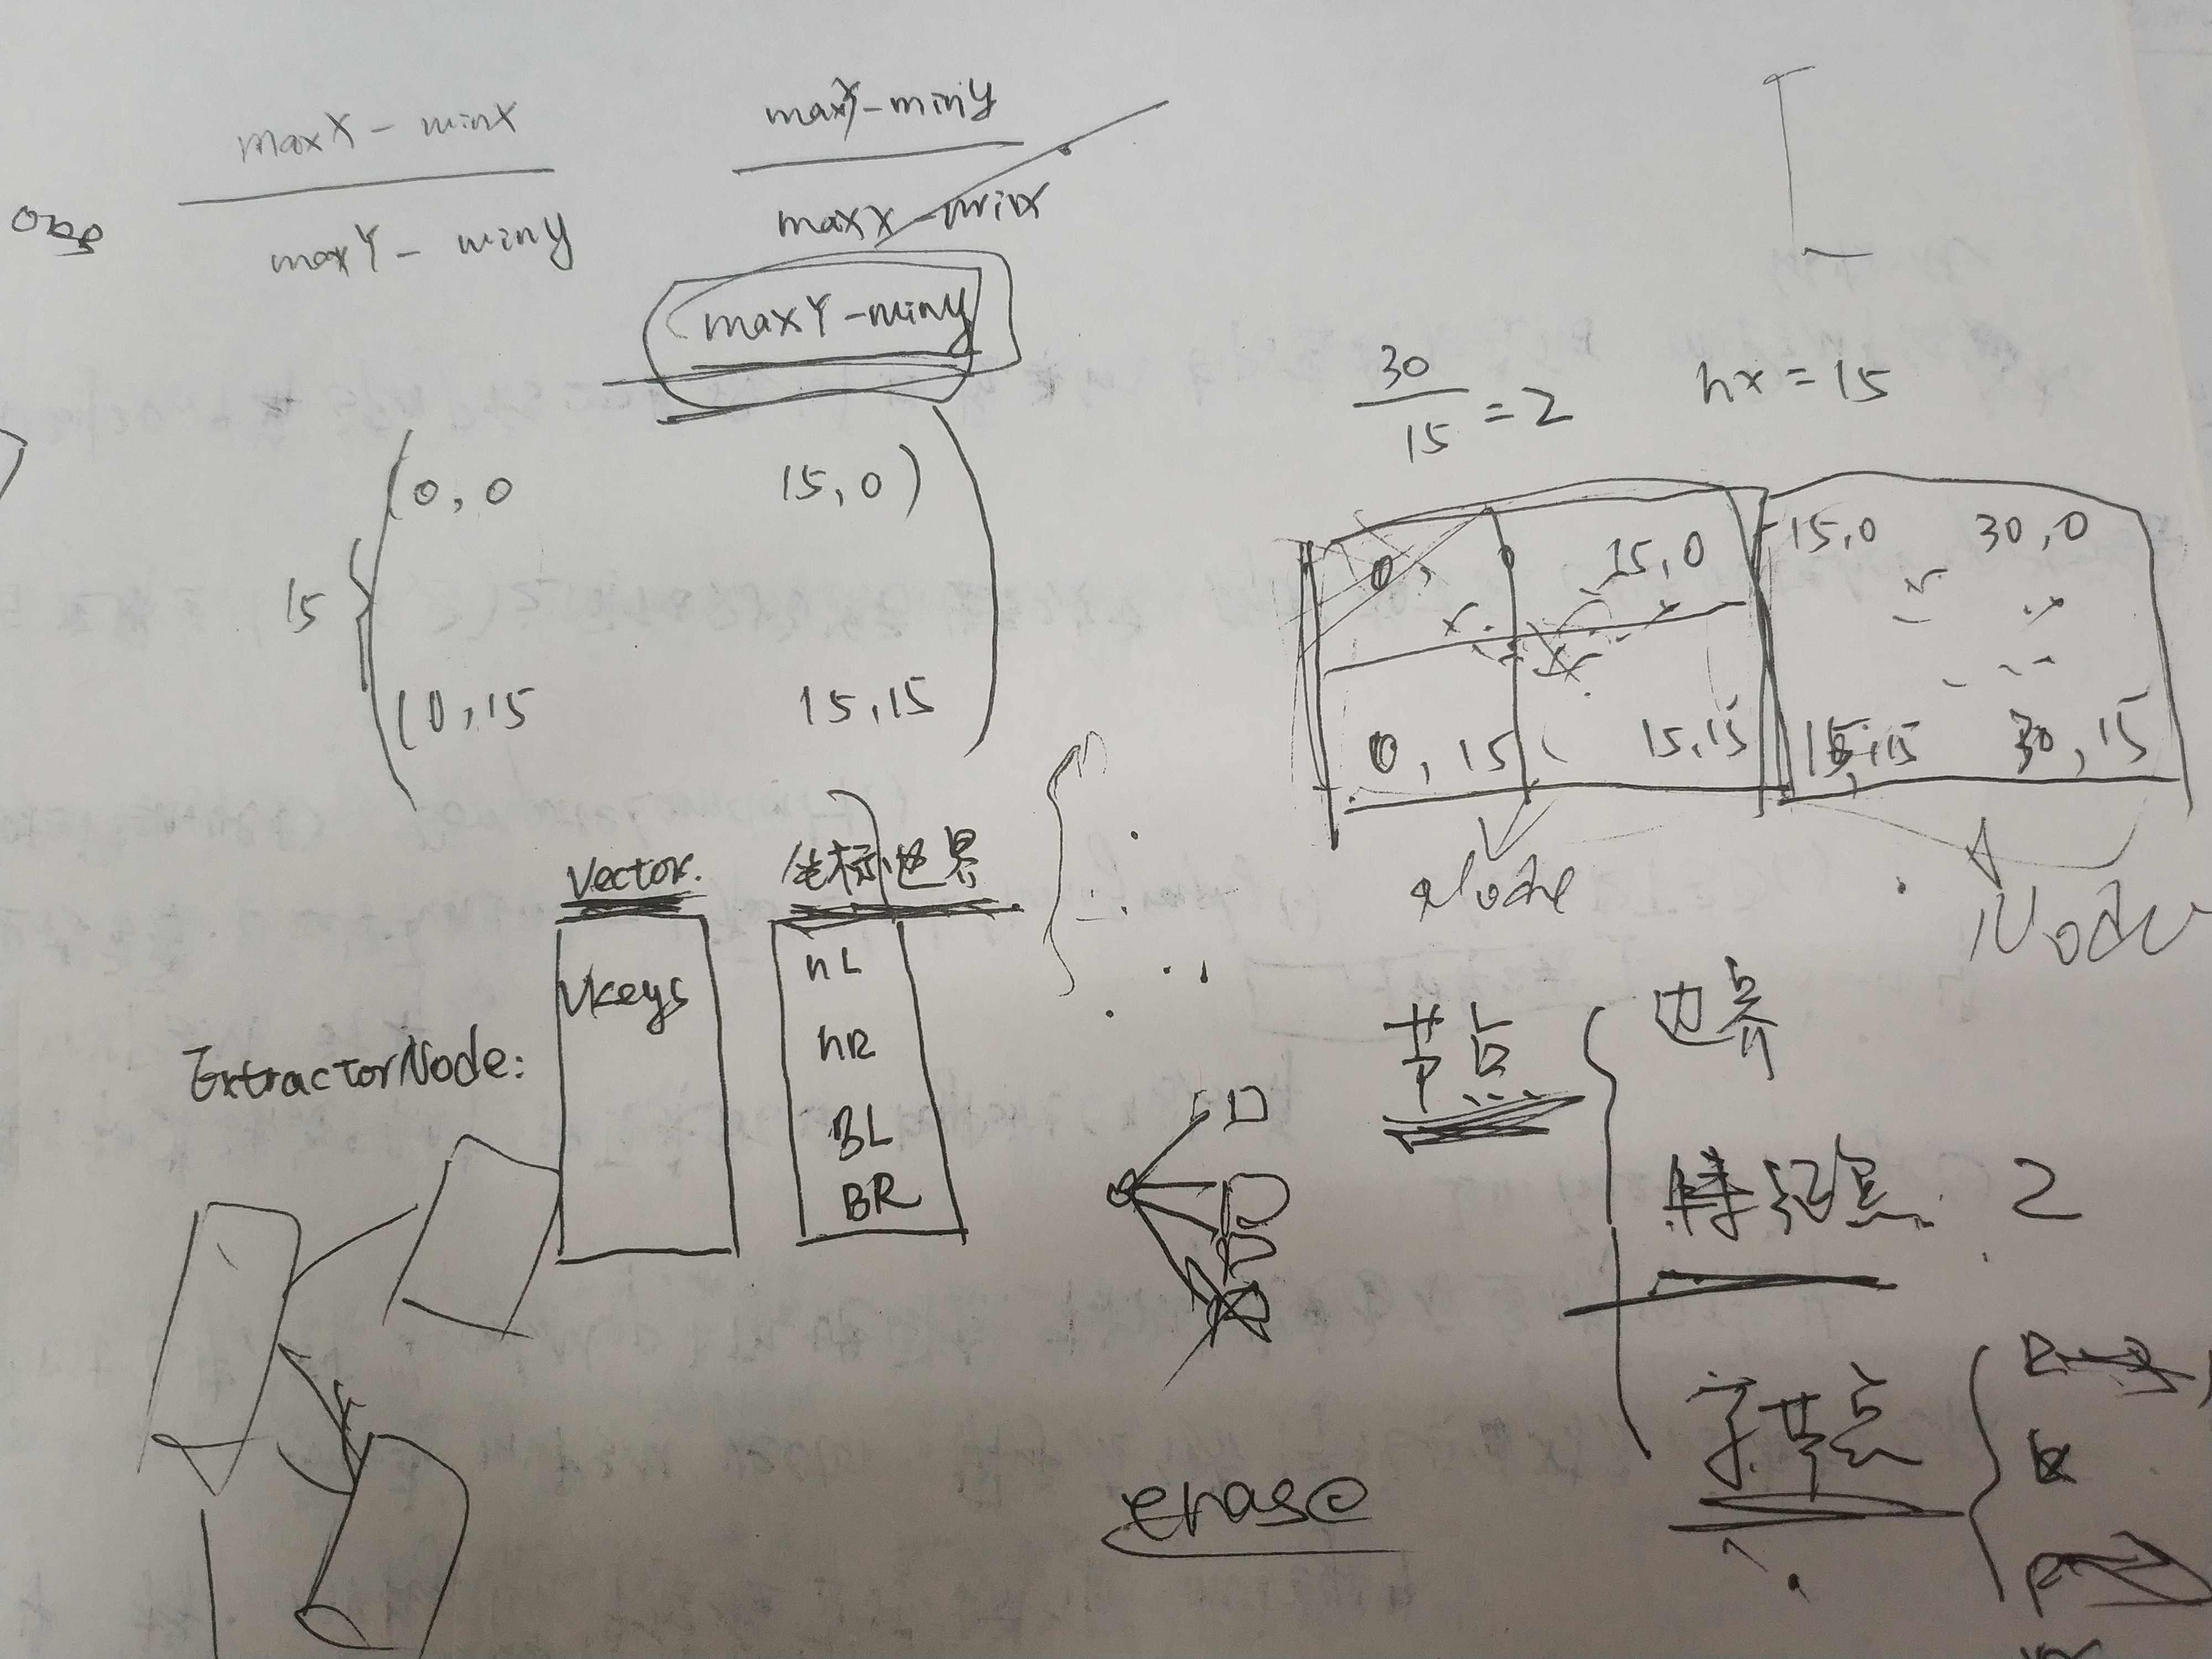 maxX - minX
maxY - miny
maxY - miny
maxX - minx
maxY - miny
30
15 = 2
hx = 15
(0,0 15,0)
15
(0,15 15,15
0, 0 15,0
0,15 15,15
15,0 30,0
15,15 30,15
Node
Node
Vector.
坐标边界
Vkeys
nL
nR
BL
BR
ExtractorNode:
节点
边界
特征点 2
子节点
erase